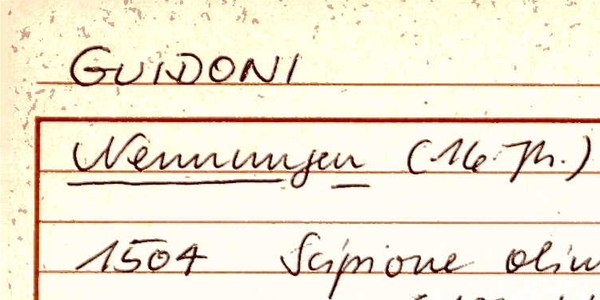 GUIDONI
Nennungen (16. Jh.)
1504 Scipione